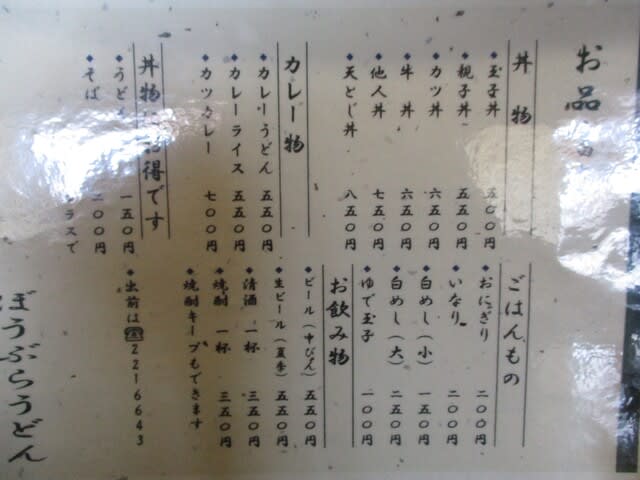 お品
丼物
玉子丼 五〇〇円
親子丼 五五〇円
カツ丼 六五〇円
牛丼 六五〇円
他人丼 七五〇円
天とじ丼 八五〇円
カレー物
カレーうどん 五五〇円
カレーライス 五五〇円
カツカレー 七〇〇円
丼物にお得です
うどん 一五〇円
そば 二〇〇円
プラスで
ごはんもの
おにぎり 二〇〇円
いなり 二〇〇円
白めし(小) 一五〇円
白めし(大) 二五〇円
ゆで玉子 一〇〇円
お飲み物
ビール(中びん) 五五〇円
生ビール(夏季) 五五〇円
清酒 一杯 三五〇円
焼酎 一杯 三五〇円
焼酎キープもできます
出前は☎2216643
ぼうぶらうどん